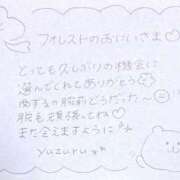 フォレストのおにいさま♡
とっても久しぶりの機会に
選んでくれてありがとう
両するの脱前どうだった〜
脱毛頑張ってね♡
また会えますように
yuzuru